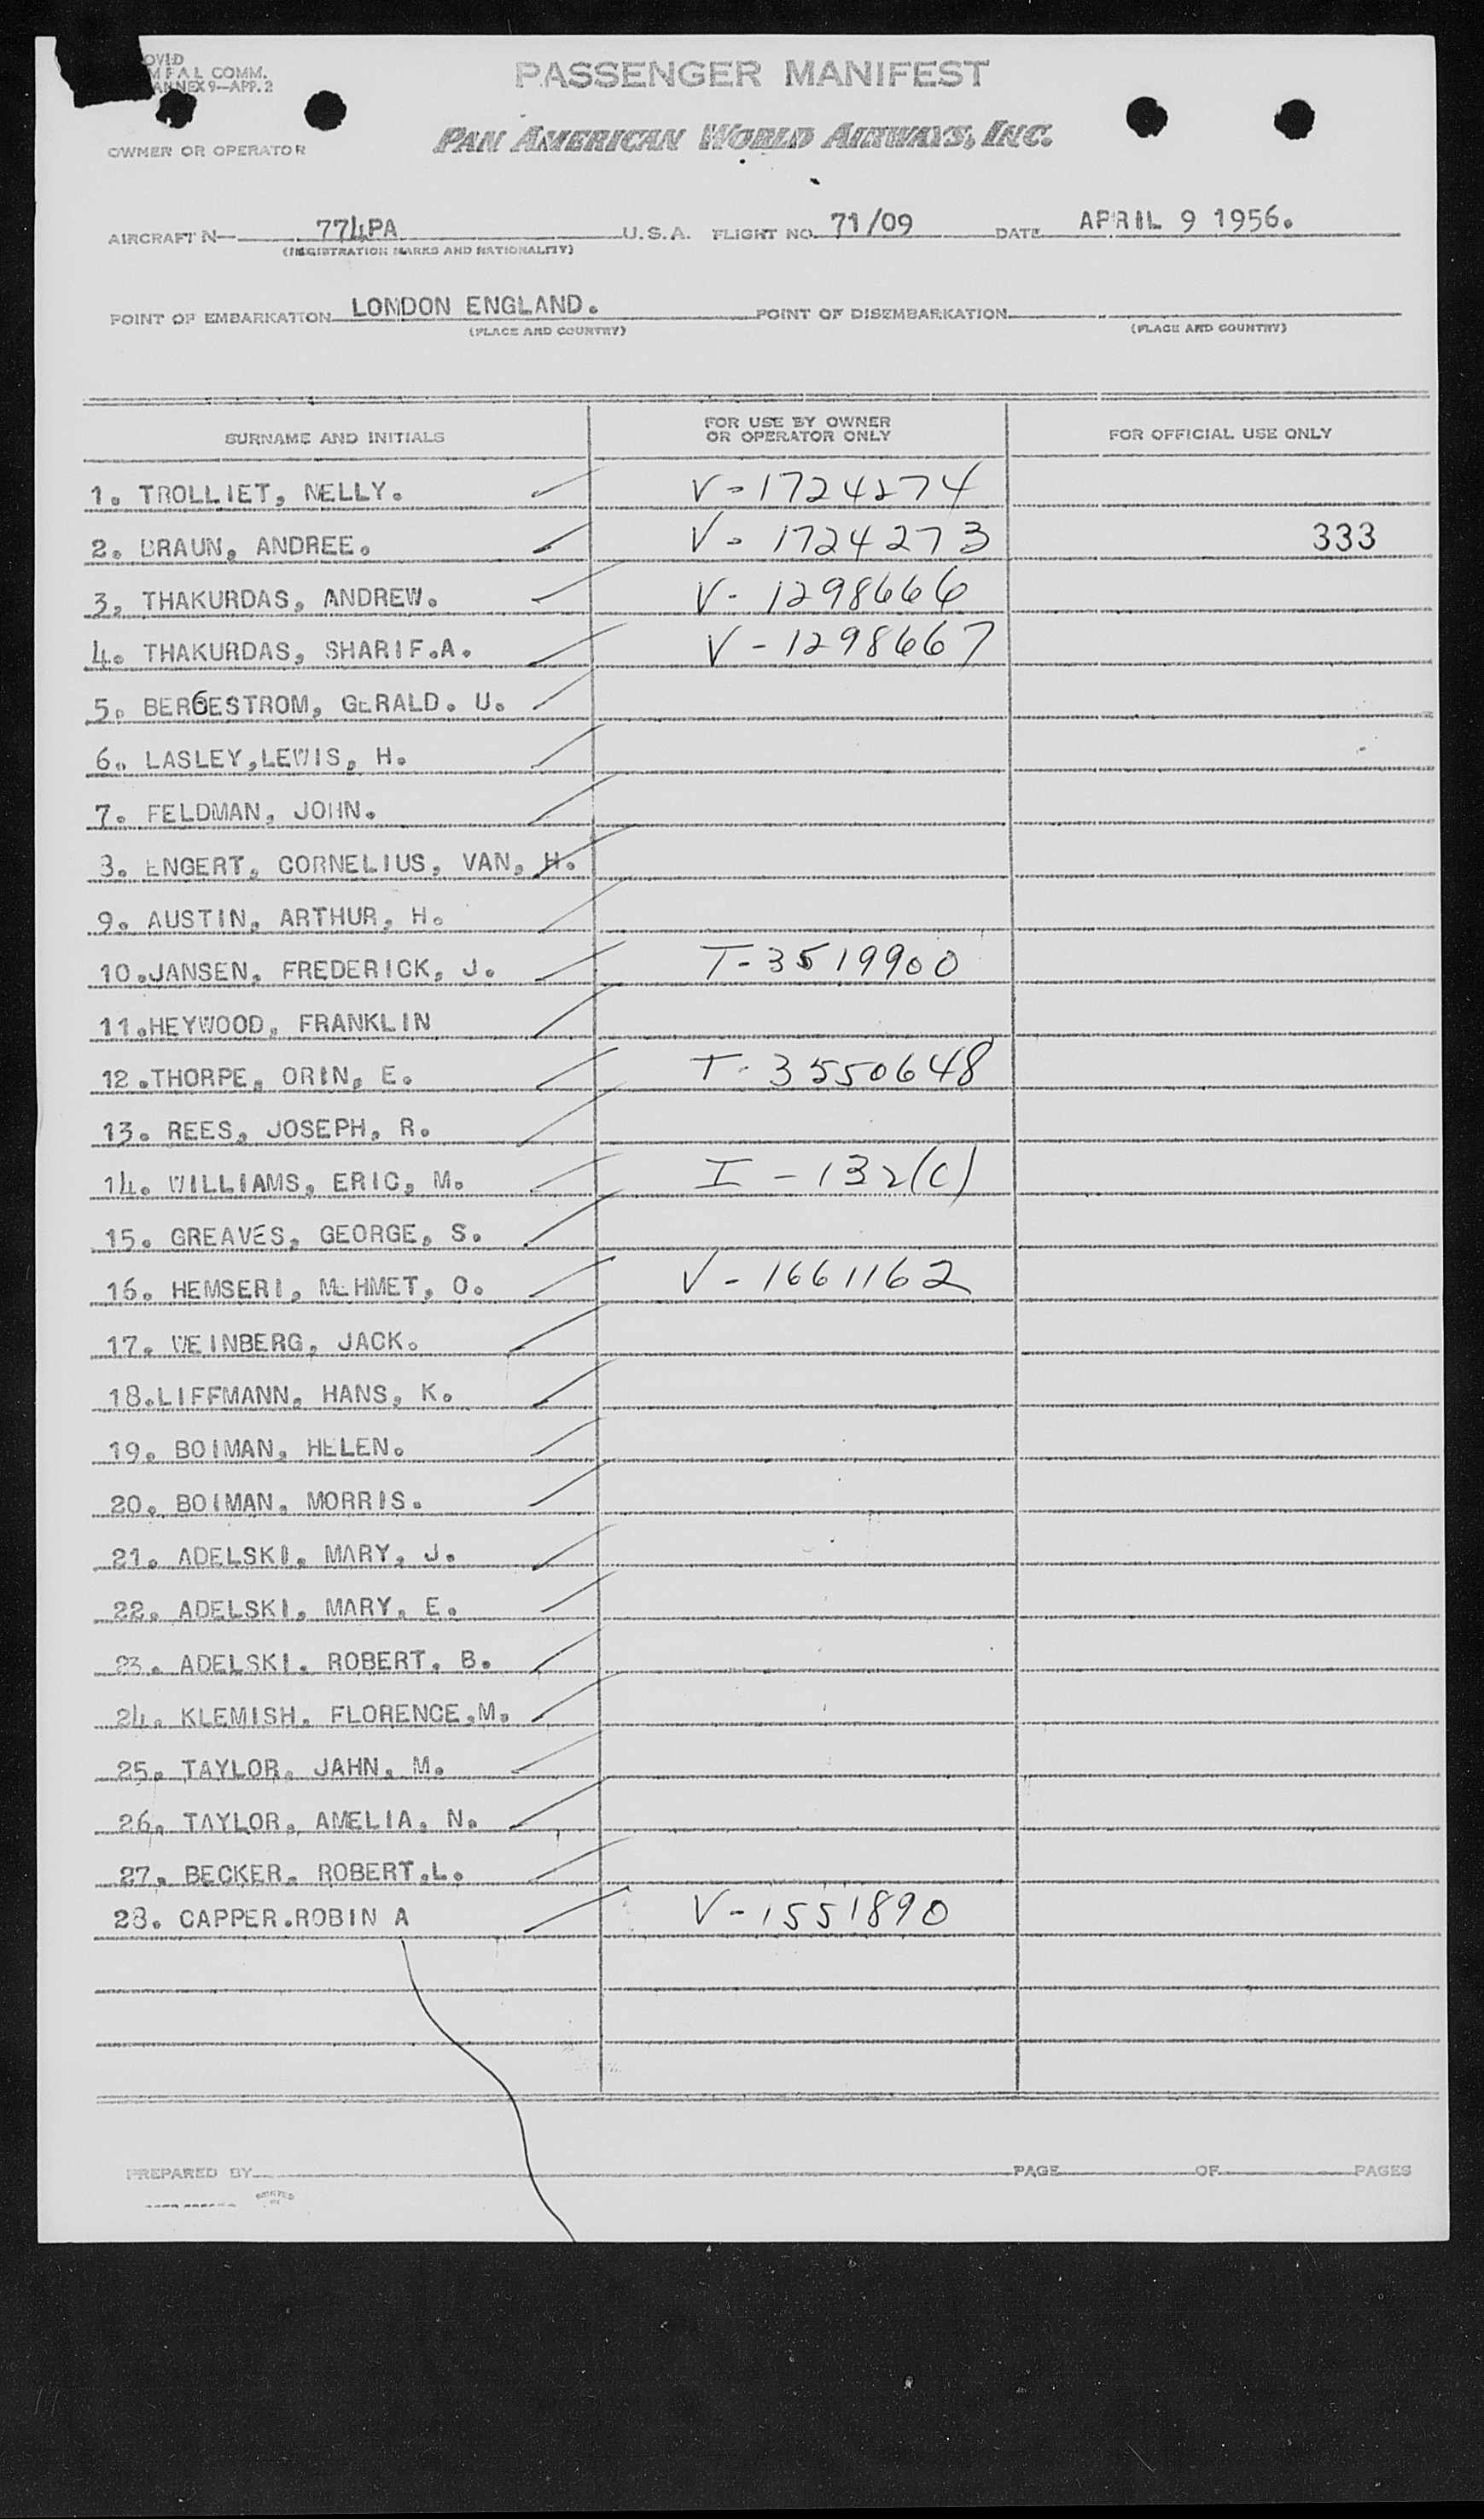 OVID
M F A L COMM.
ANNEX 9—APP. 2
PASSENGER MANIFEST
PAN AMERICAN WORLD AIRWAYS, INC.
OWNER OR OPERATOR
AIRCRAFT N— 774PA U.S.A. FLIGHT NO. 71/09 DATE APRIL 9 1956.
(REGISTRATION MARKS AND NATIONALITY)
POINT OF EMBARKATION LONDON ENGLAND. POINT OF DISEMBARKATION
(PLACE AND COUNTRY) (PLACE AND COUNTRY)
SURNAME AND INITIALS FOR USE BY OWNER OR OPERATOR ONLY FOR OFFICIAL USE ONLY
1. TROLLIET, NELLY. V-1724274
2. BRAUN, ANDREE. V-1724273 333
3. THAKURDAS, ANDREW. V-1298666
4. THAKURDAS, SHARIF.A. V-1298667
5. BERGESTROM, GERALD. U.
6. LASLEY,LEWIS, H.
7. FELDMAN, JOHN.
8. ENGERT, CORNELIUS, VAN, H.
9. AUSTIN, ARTHUR, H.
10.JANSEN, FREDERICK, J. T-3519900
11.HEYWOOD, FRANKLIN
12.THORPE, ORIN, E. T-3550648
13. REES, JOSEPH, R.
14. WILLIAMS, ERIC, M. I-132(C)
15. GREAVES, GEORGE, S.
16. HEMSERI, MEHMET, O. V-1661162
17. WEINBERG, JACK.
18.LIFFMANN, HANS, K.
19. BOIMAN, HELEN.
20. BOIMAN, MORRIS.
21. ADELSKI, MARY, J.
22. ADELSKI, MARY, E.
23. ADELSKI, ROBERT, B.
24. KLEMISH, FLORENCE,M.
25. TAYLOR, JAHN, M.
26. TAYLOR, AMELIA, N.
27. BECKER, ROBERT.L.
28. CAPPER.ROBIN A V-1551890
PREPARED BY PAGE OF PAGES